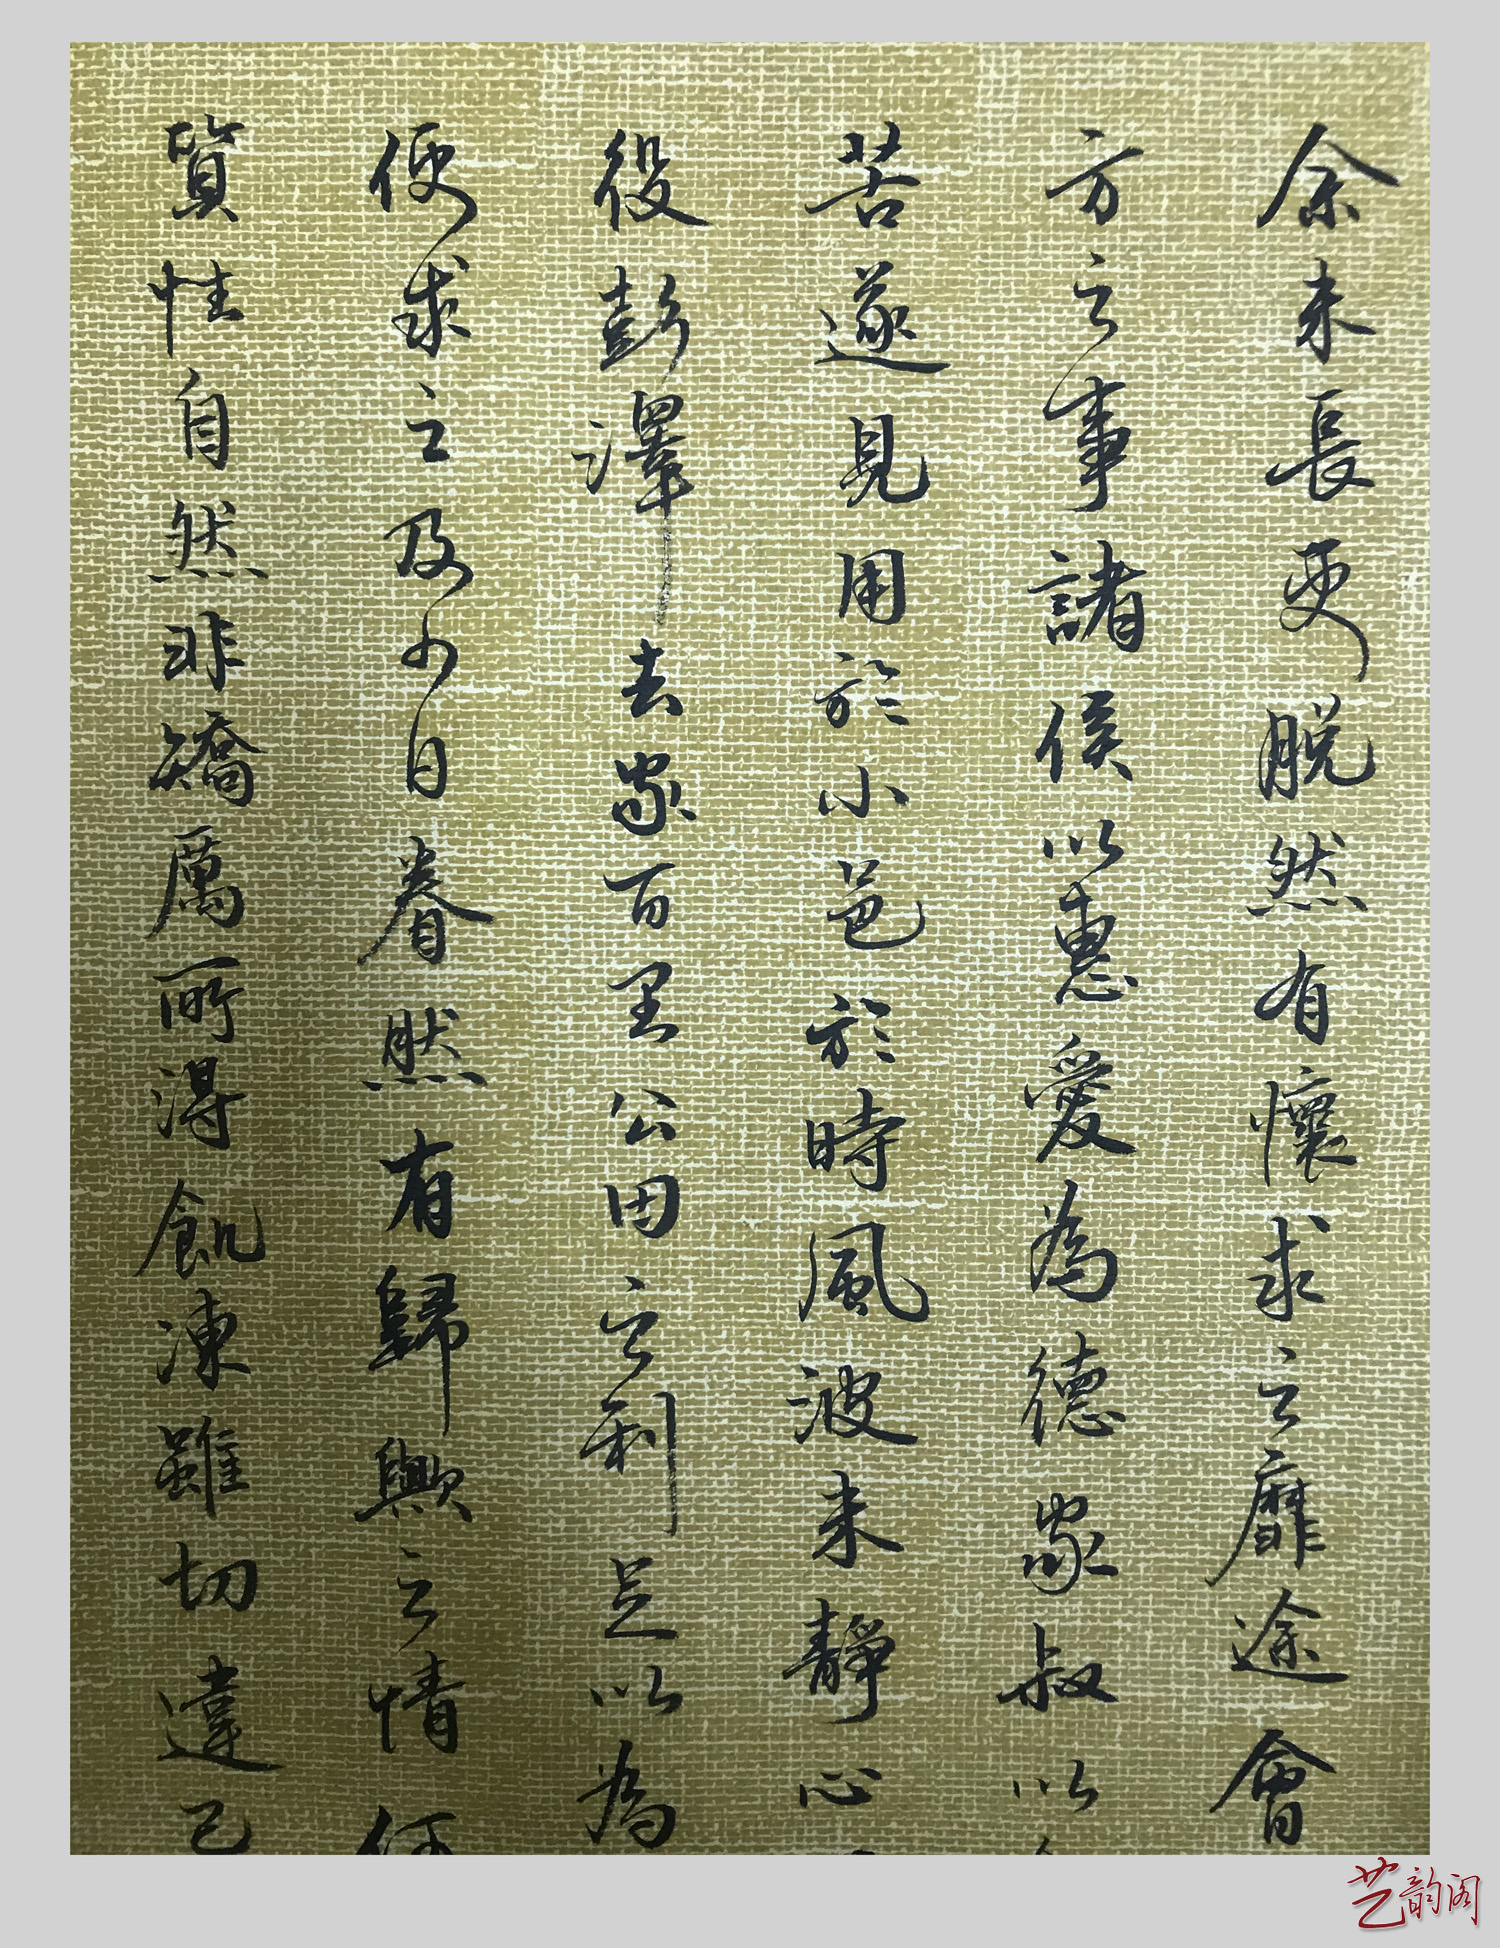 余未長吏脱然有懷求之靡途會
方之事諸侯以惠愛為德家叔以
苦遂見用於小邑於時風波未靜心
役彭澤去家百里公田之利足以為
便求之及少日眷然有歸歟之情何
質性自然非矯厲所得飢凍雖切違己
艺韵阁